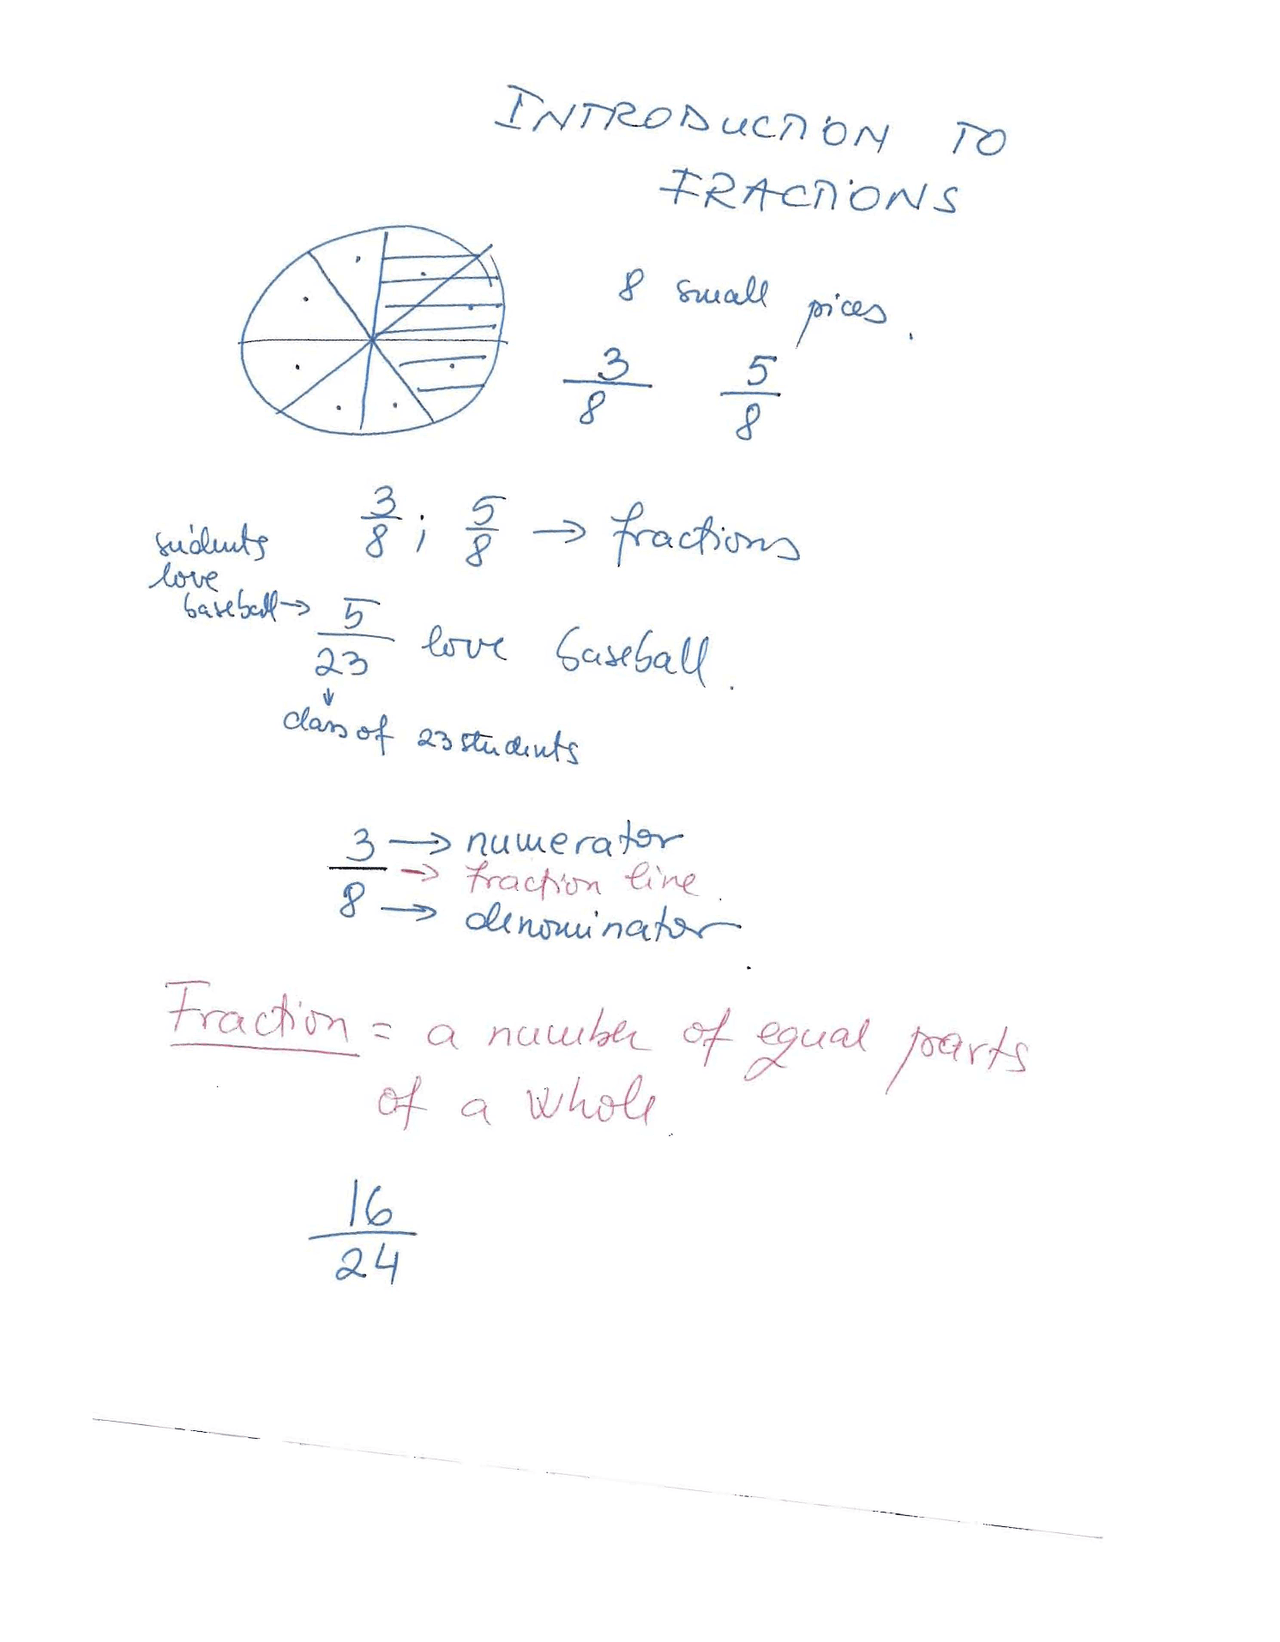 INTRODUCTION TO
FRACTIONS
8 small pices.
3/8 5/8
3/8 ; 5/8 → fractions
students
love
baseball →
5/23 love baseball.
↓
class of 23 students
3 → numerator
→ fraction line.
8 → denominator
Fraction = a number of equal parts
of a whole.
16/24